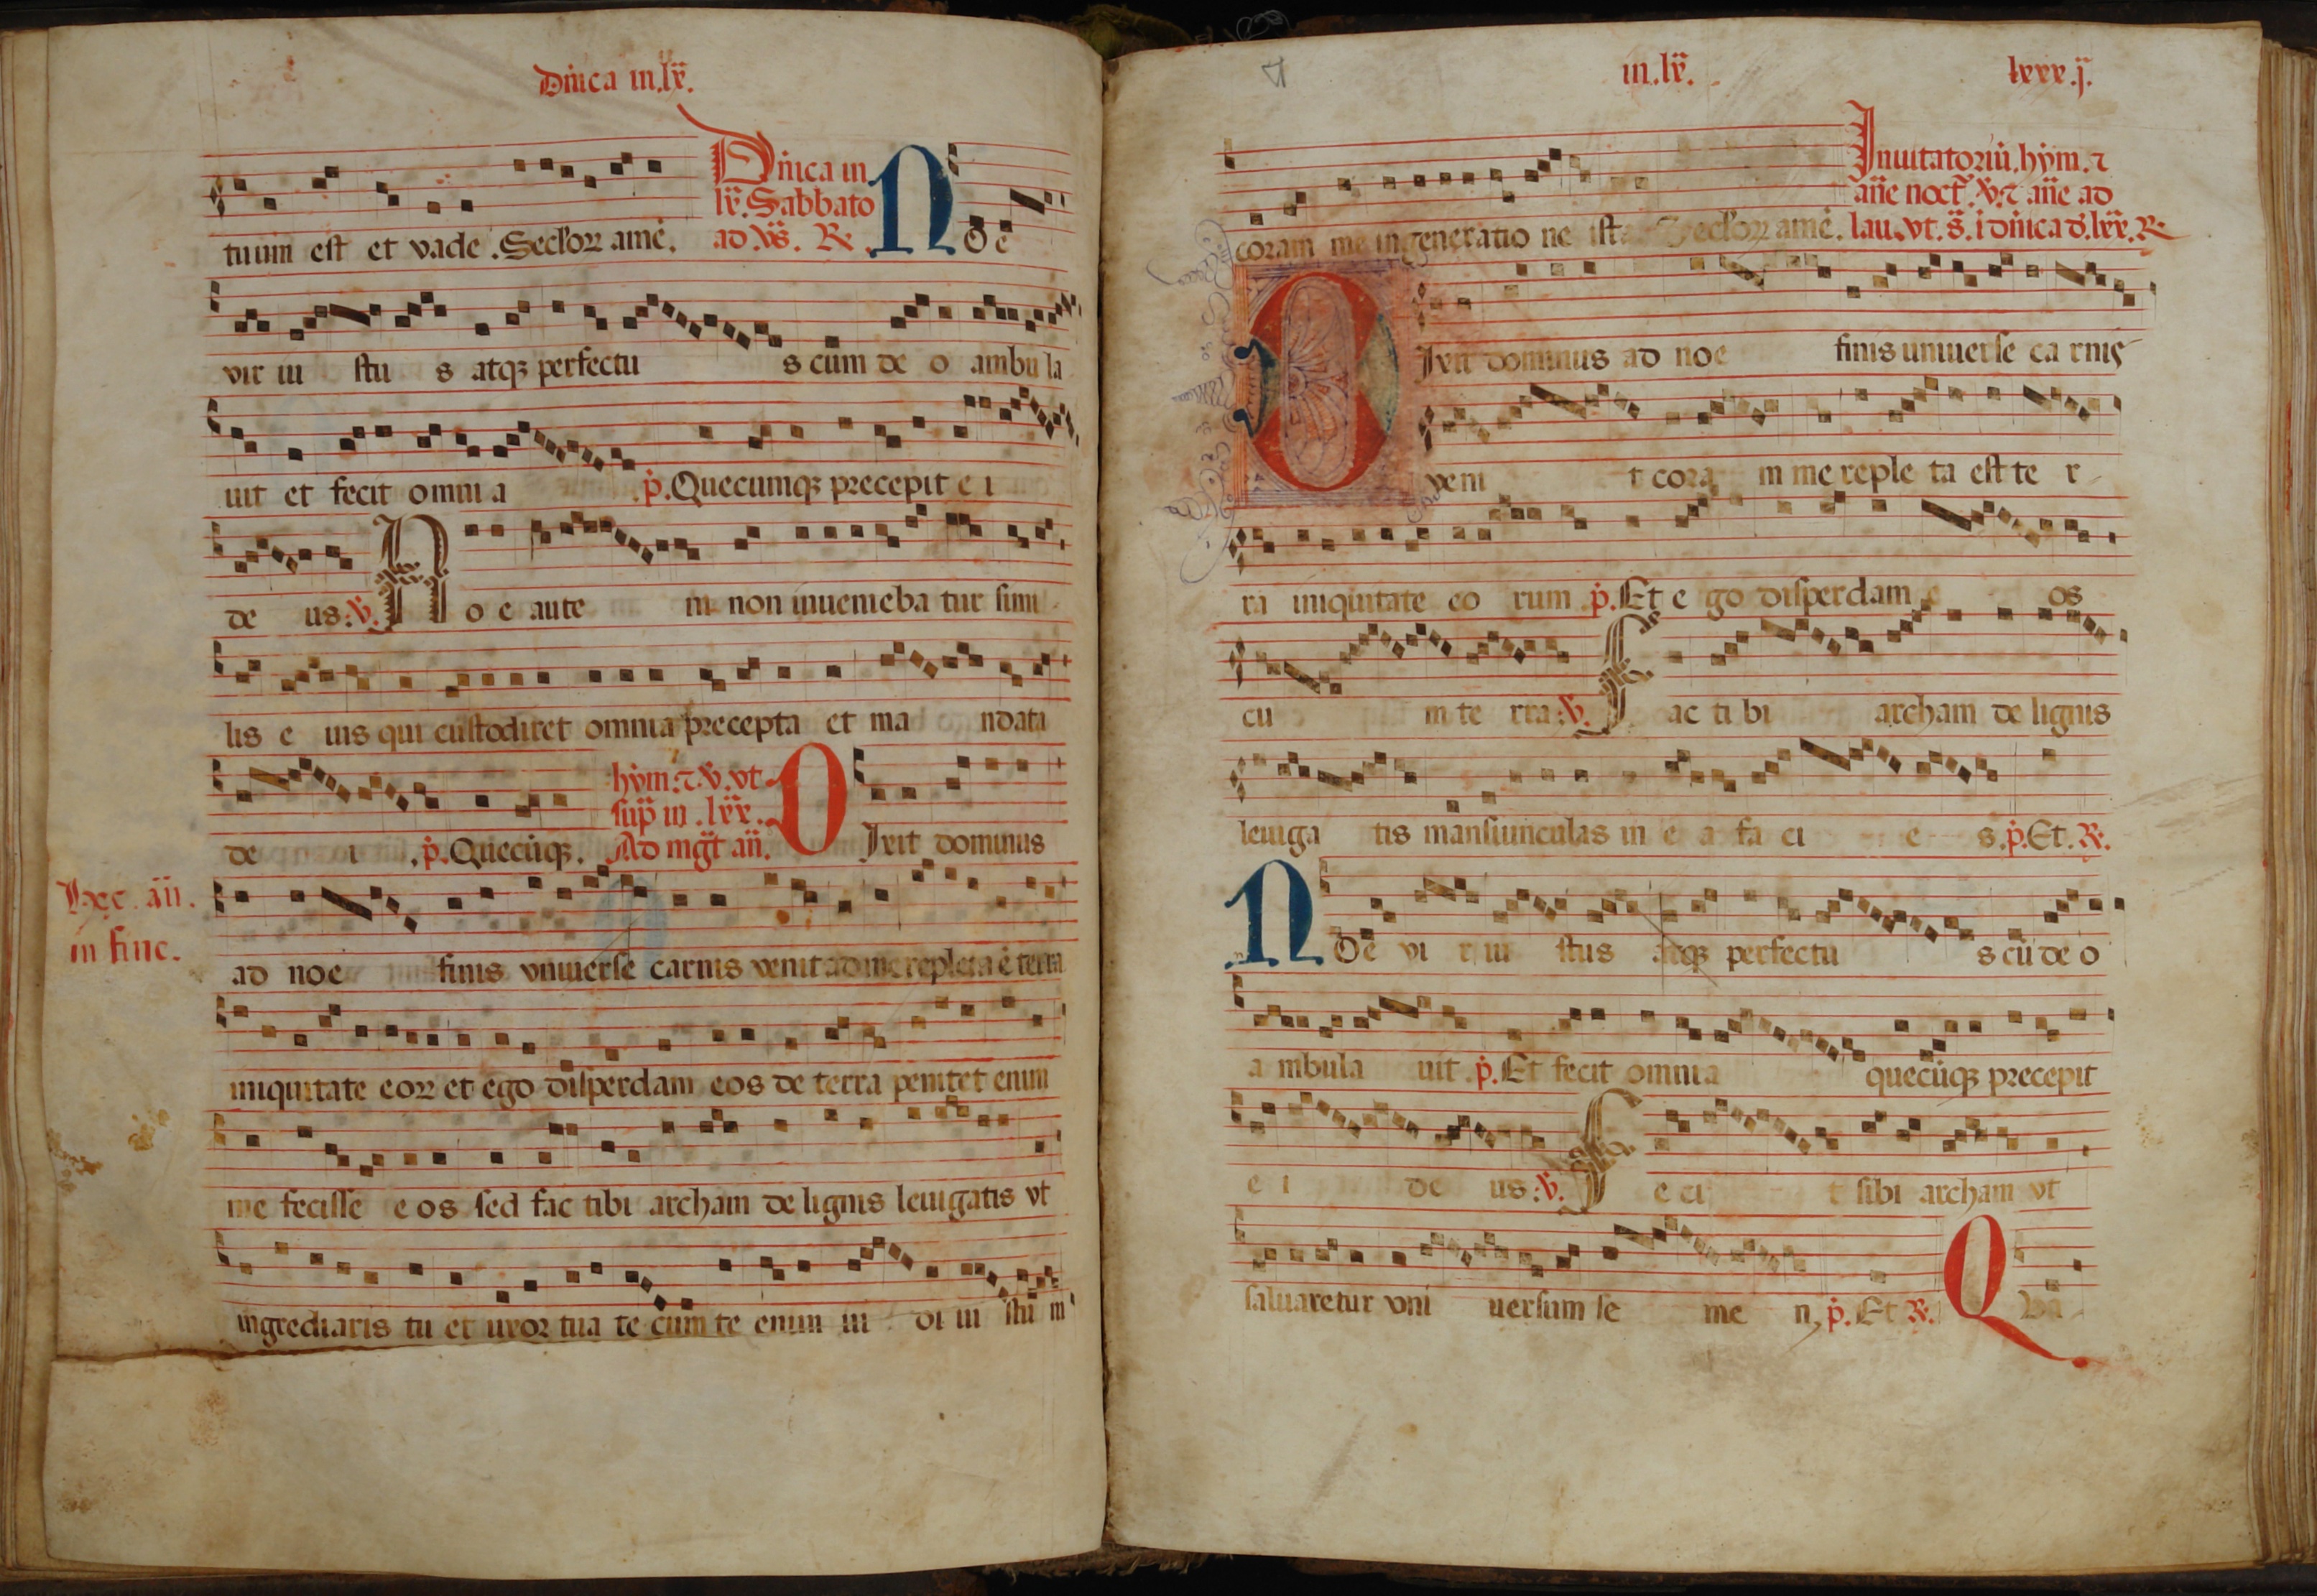 Dnica in.lx.
tuum est et vade. Seclorꝝ amē.
Dnica in
lx. Sabbato
ad vs. R.
Noe
vir iu stu s atqꝫ perfectu s cum de o ambula
uit et fecit omni a .p. Quecumqꝫ precepit e i
de us: v. No e aute m non inuenieba tur simi
lis e uis qui custodiret omnia precepta et ma ndata
de i .p. Quecūqꝫ.
hym. ⁊ v. vt
sup in .lxx.
Ad mgt an.
Dixit dominus
Hec. an.
in fine.
ad noe finis vniuerse carnis venit ad me repleta ē terra
iniquitate eoꝝ et ego disperdam eos de terra penitet enim
me fecisse e os sed fac tibi archam de lignis leuigatis vt
ingrediaris tu et uxor tua te cum te enim ui di iu stū m
in.lx. lxxx.j.
Inuitatoriū. hym. ⁊
ane noct. v. ⁊ ane ad
lau. vt. s. i dnica d. lxx. R.
coram me in generatio ne ista Seclorꝝ amē.
Dixit dominus ad noe finis uniuerse ca rnis
veni t cora m me reple ta est te r
ra iniquitate eo rum .p. Et e go disperdam e os
cu m te rra: v. Fac ti bi archam de lignis
leuiga tis mansiunculas in e a fa ci e s .p. Et. R.
Noe vi r iu stus atqꝫ perfectu s cū de o
a mbula uit .p. Et fecit omnia quecūqꝫ precepit
e i de us: v. Fe ci t sibi archam vt
saluaretur vni uersum se me n, p. Et R. Q